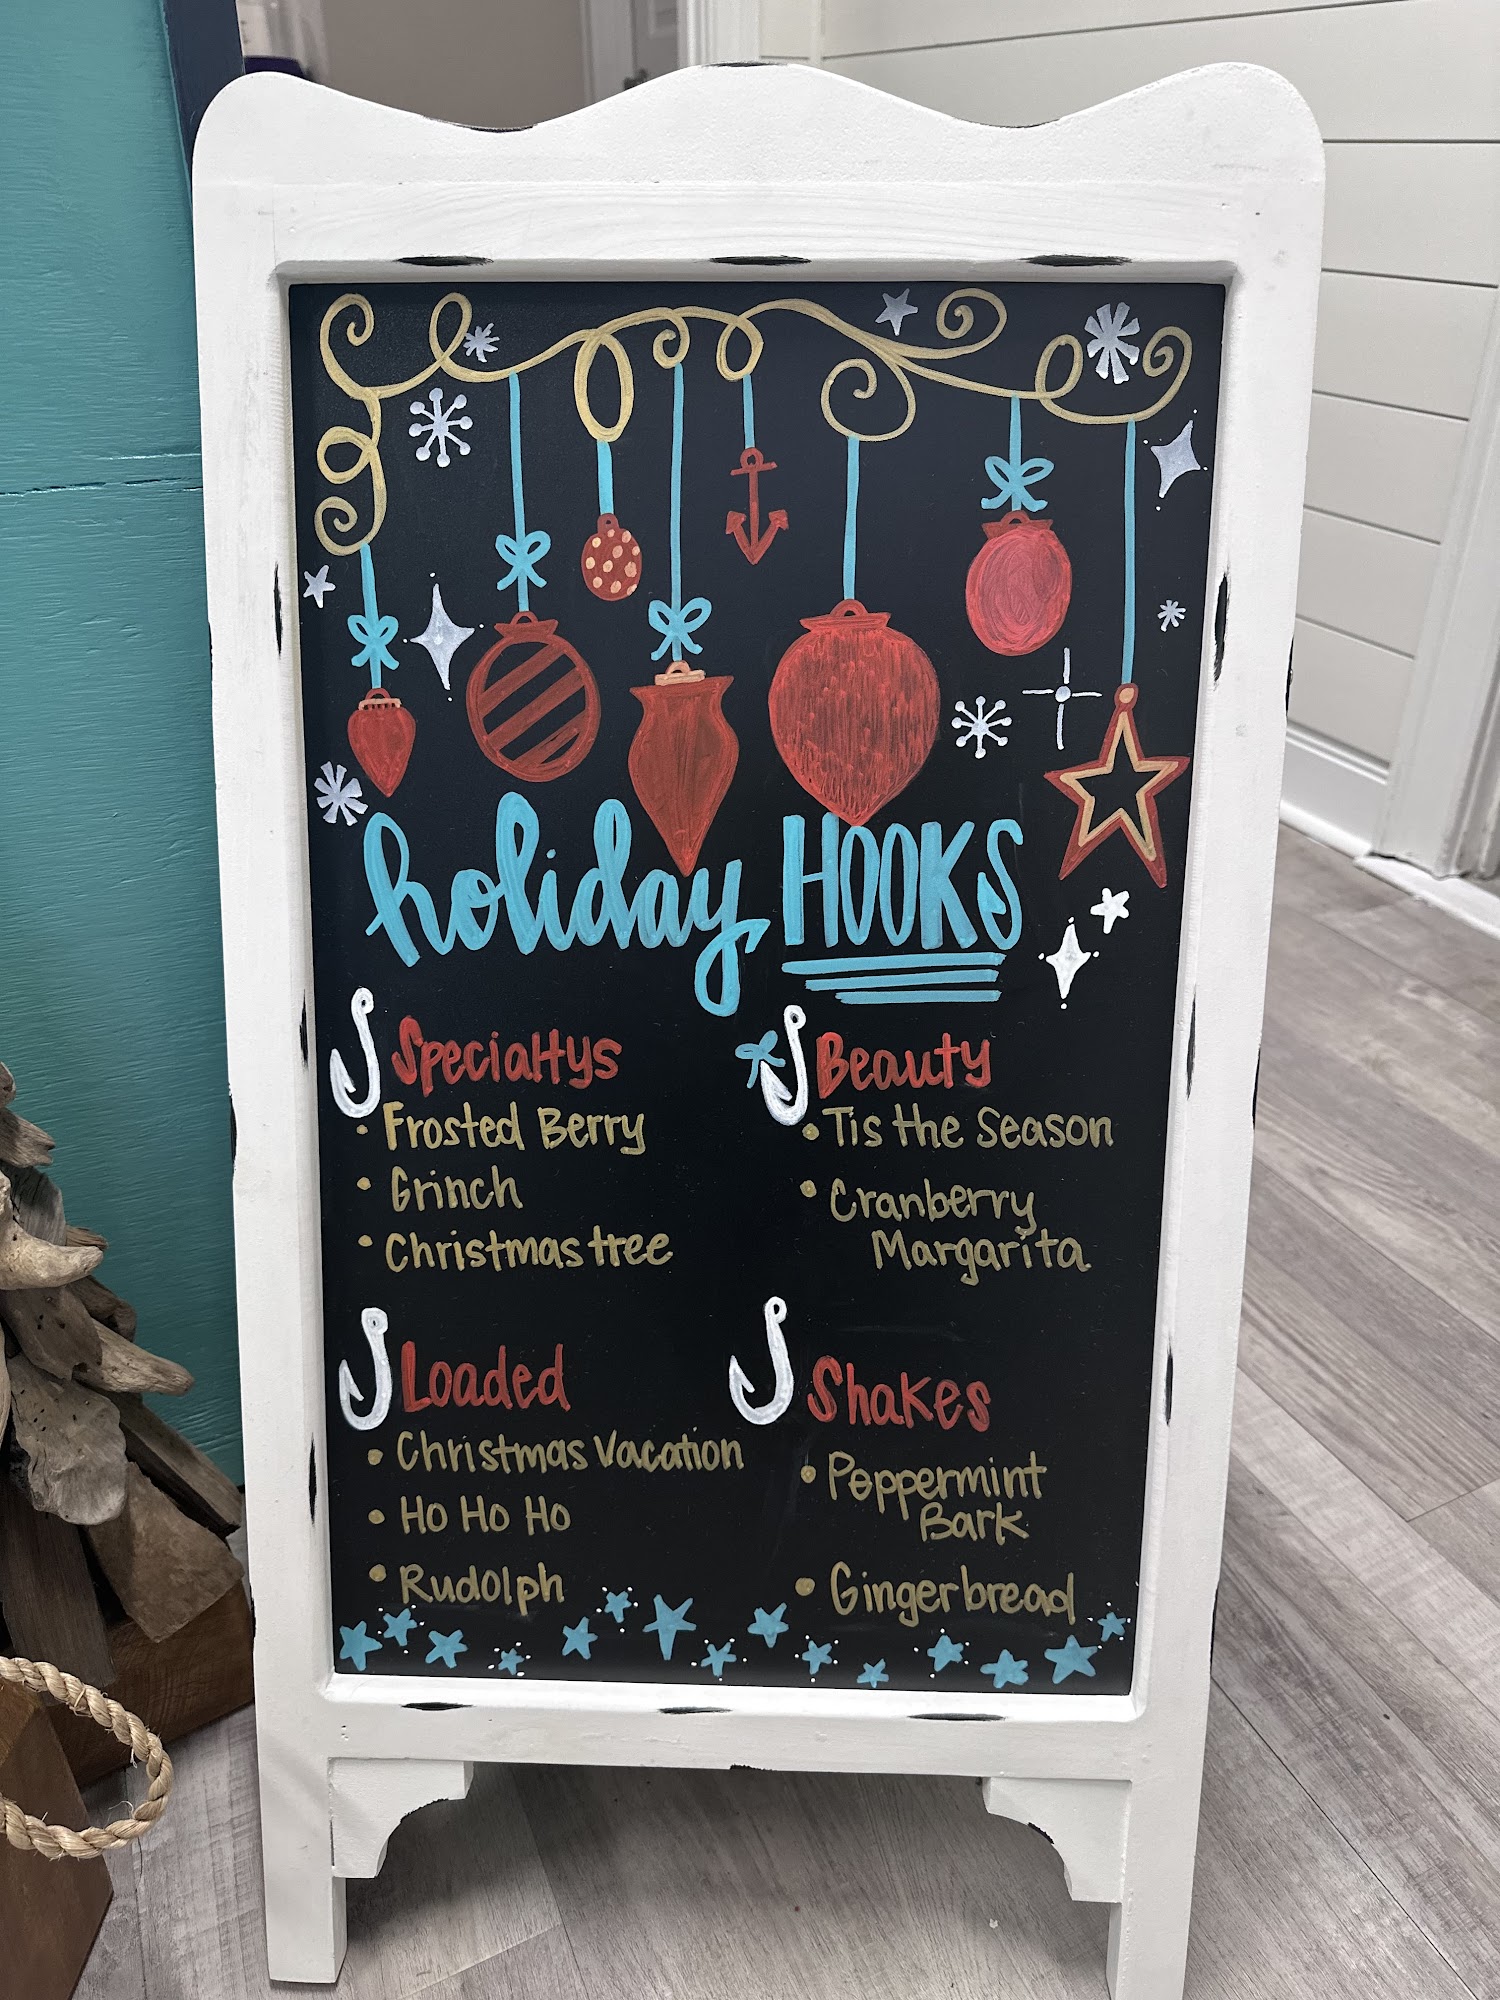 holiday HOOKS
Specialtys
• Frosted Berry
• Grinch
• Christmas tree
Beauty
• Tis the Season
• Cranberry
Margarita
Loaded
• Christmas Vacation
• Ho Ho Ho
• Rudolph
Shakes
• Peppermint
Bark
• Gingerbread